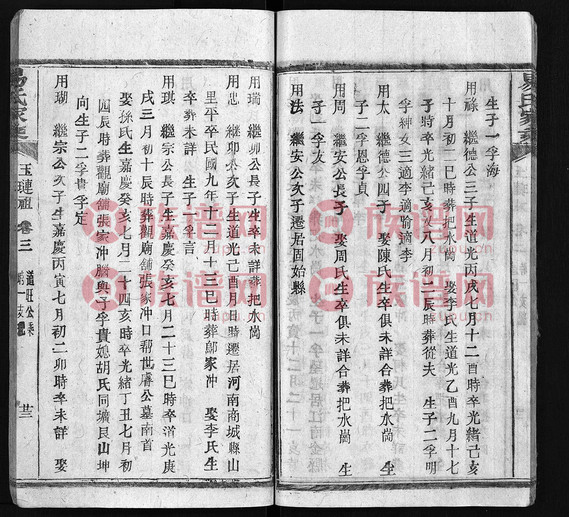 生子一孚海
用祿　繼德公三子生道光丙戌七月十二酉時卒光緒己亥
十月初二巳時葬把水崗　娶李氏生道光乙酉九月十七
子時卒光緒己亥八月初三辰時葬從夫　生子二孚明
孚紳女三適李適喻適李
用太　繼德公四子　娶陳氏生卒俱未詳合葬把水崗　生
子二孚恩孚貞
用周　繼安公長子　娶周氏生卒俱未詳合葬把水崗　生
子一孚友
用法　繼安公次子遷居固始縣
用瑞　繼卯公長子生卒未詳葬把水崗
用忠　繼卯公次子生道光己酉月日時遷居河南商城縣山
里平卒民國九年十一月十三巳時葬鄔家冲　娶李氏生
卒葬未詳　生子一孚言
用琪　繼宗公長子生嘉慶癸亥七月二十三巳時卒道光庚
戌三月初十辰時葬觀廟舖張家冲口幇世膚公墓南首
娶孫氏生嘉慶癸亥七月二十四亥時卒光緒丁丑七月初
四辰時葬觀廟舖張家冲與子孚貴媳胡氏同壙艮山坤
向生子二孚貴孚定
用瑚　繼宗公次子生嘉慶丙寅七月初二卯時卒未詳　娶
易氏家乘
玉璉祖　卷三
道旺公乘
廿三
族谱网